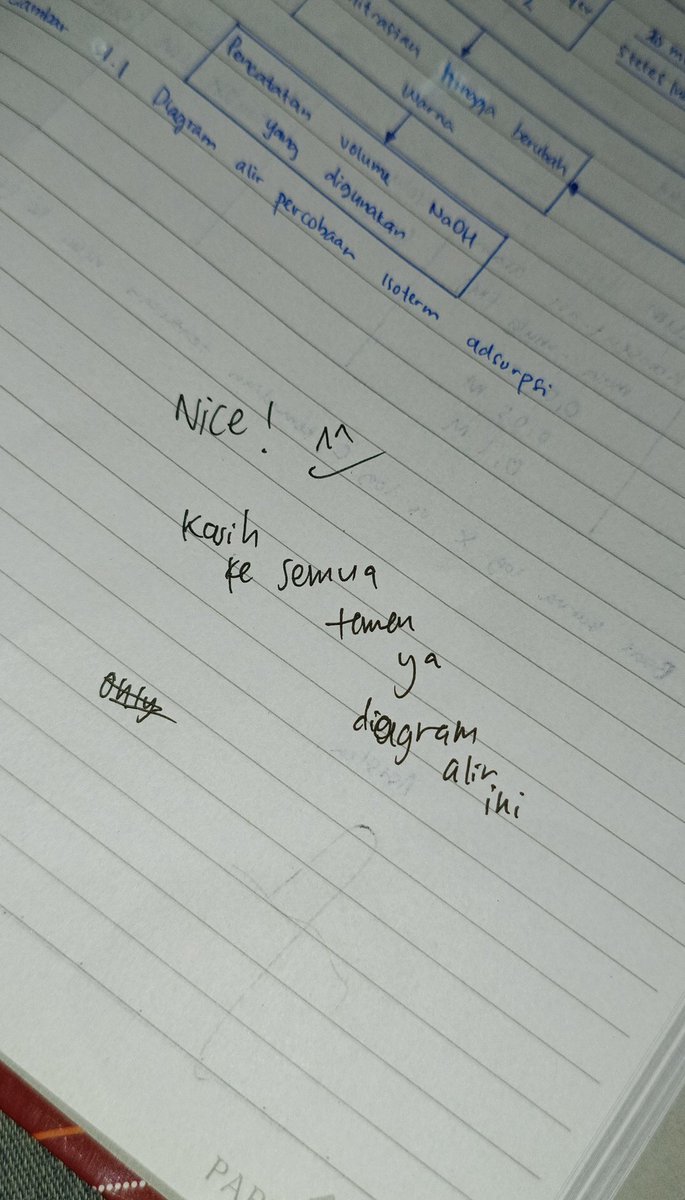 hingga berubah
warna
Pencatatan volume NaOH
yang digunakan
Gambar 1.1 Diagram alir percobaan isoterm adsorpsi
Nice! ^^
Kasih
ke semua
temen
ya
diagram
alir
ini
only
PAP